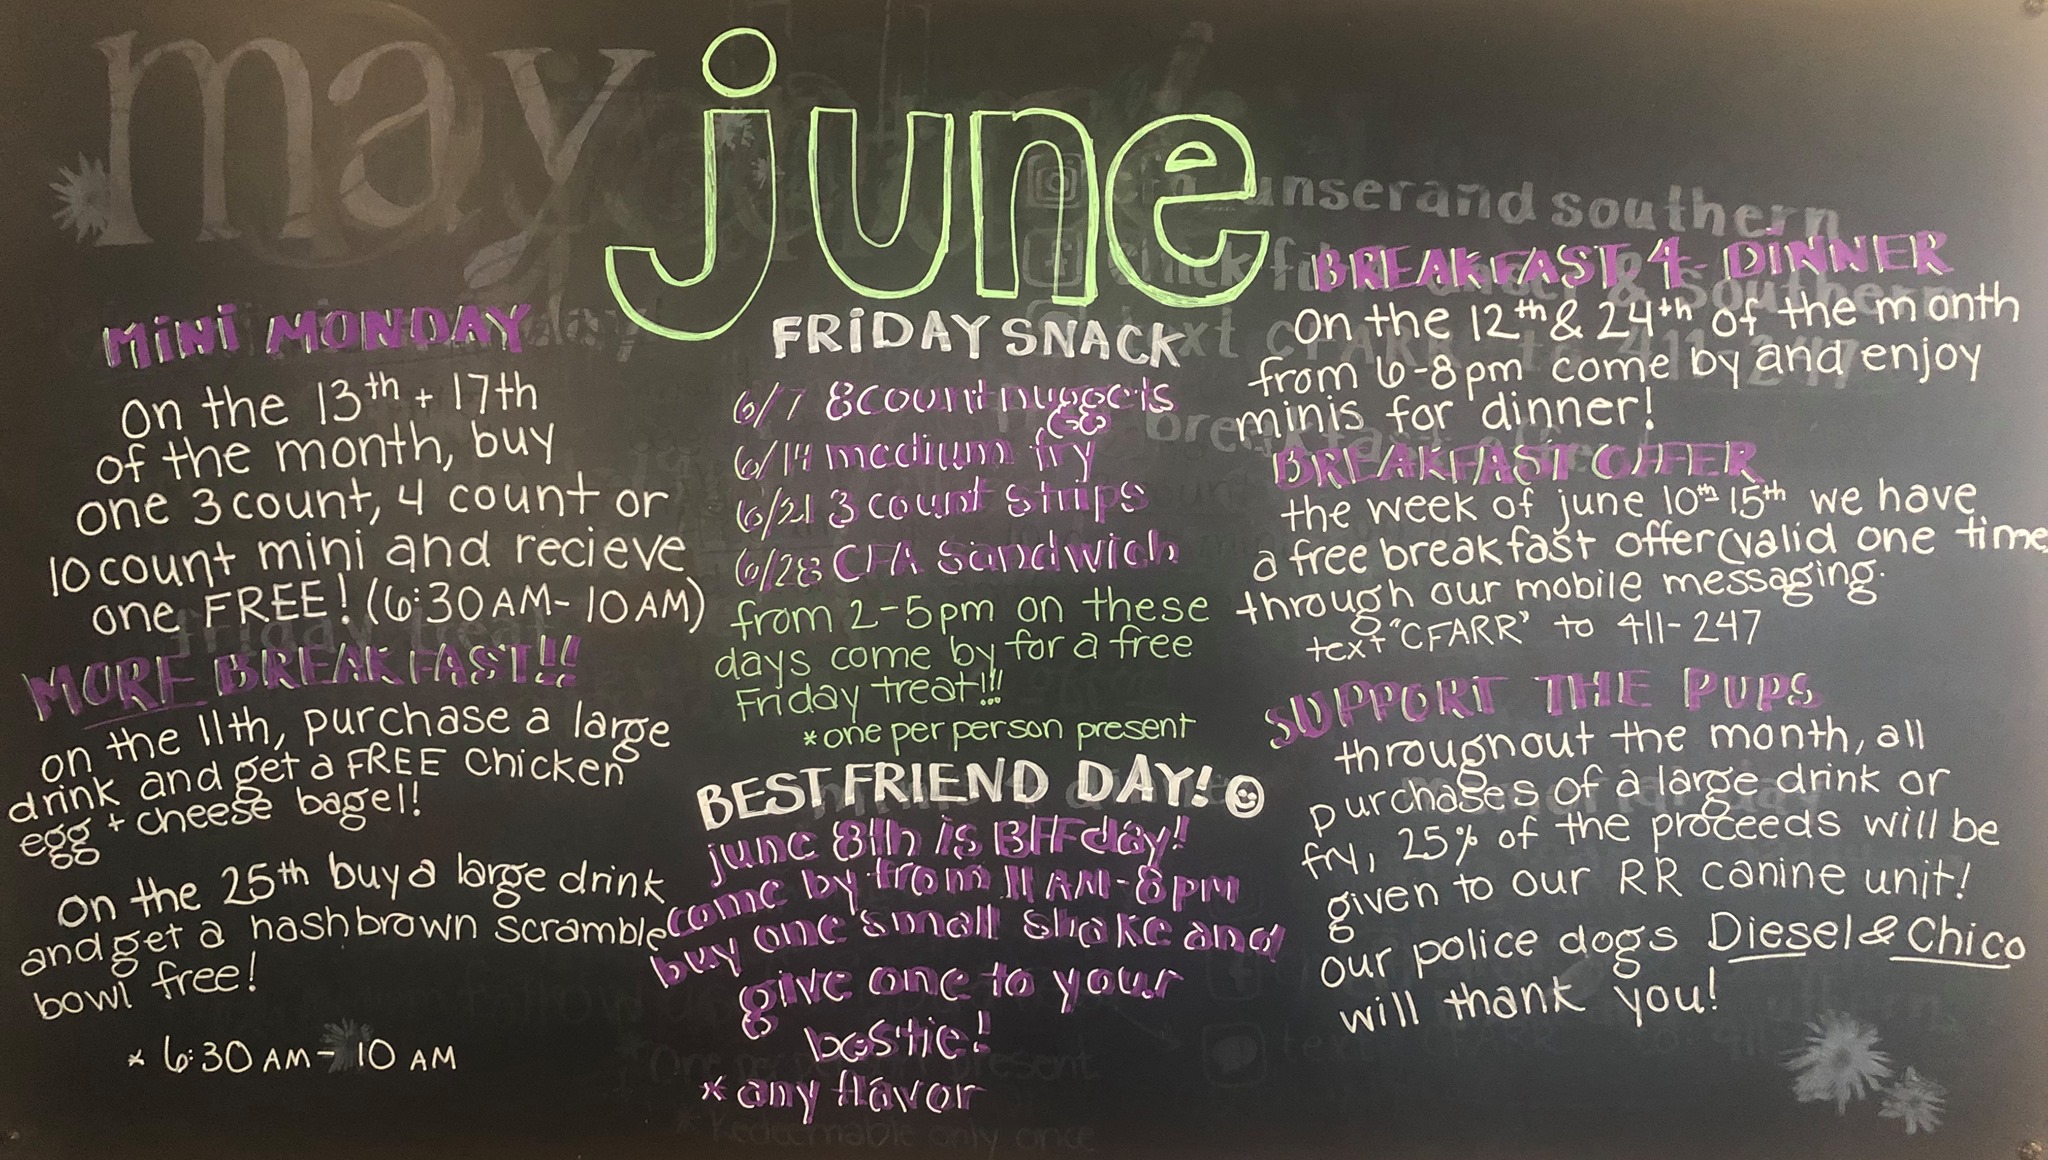 may
june
MiNi MONDAY
on the 13th + 17th
of the month, buy
one 3 count, 4 count or
10 count mini and recieve
one FREE! (6:30 AM - 10 AM)
MORE BREAKFAST!!!
on the 11th, purchase a large
drink and get a FREE Chicken
egg + cheese bagel!
on the 25th buy a large drink
and get a hashbrown scramble
bowl free!
* 6:30 AM - 10 AM
FRiDAY SNACK
6/7 8 count nuggets
6/14 medium fry
6/21 3 count strips
6/28 CFA Sandwich
from 2-5pm on these
days come by for a free
Friday treat!!!
*one per person present
BEST FRIEND DAY!
june 8th is BFF day!
come by from 11 AM - 8 PM
buy one small shake and
give one to your
bestie!
* any flavor
BREAKFAST 4 DiNNER
on the 12th & 24th of the month
from 6-8pm come by and enjoy
minis for dinner!
BREAKFAST OFFER
the week of june 10th 15th we have
a free breakfast offer (valid one time
through our mobile messaging.
text "CFARR" to 411-247
SUPPORT THE PUPS
throughout the month, all
purchases of a large drink or
fry, 25% of the proceeds will be
given to our RR canine unit!
our police dogs Diesel & Chico
will thank you!
unserand southern
friday treat
*One per person present
*Redeemable only once